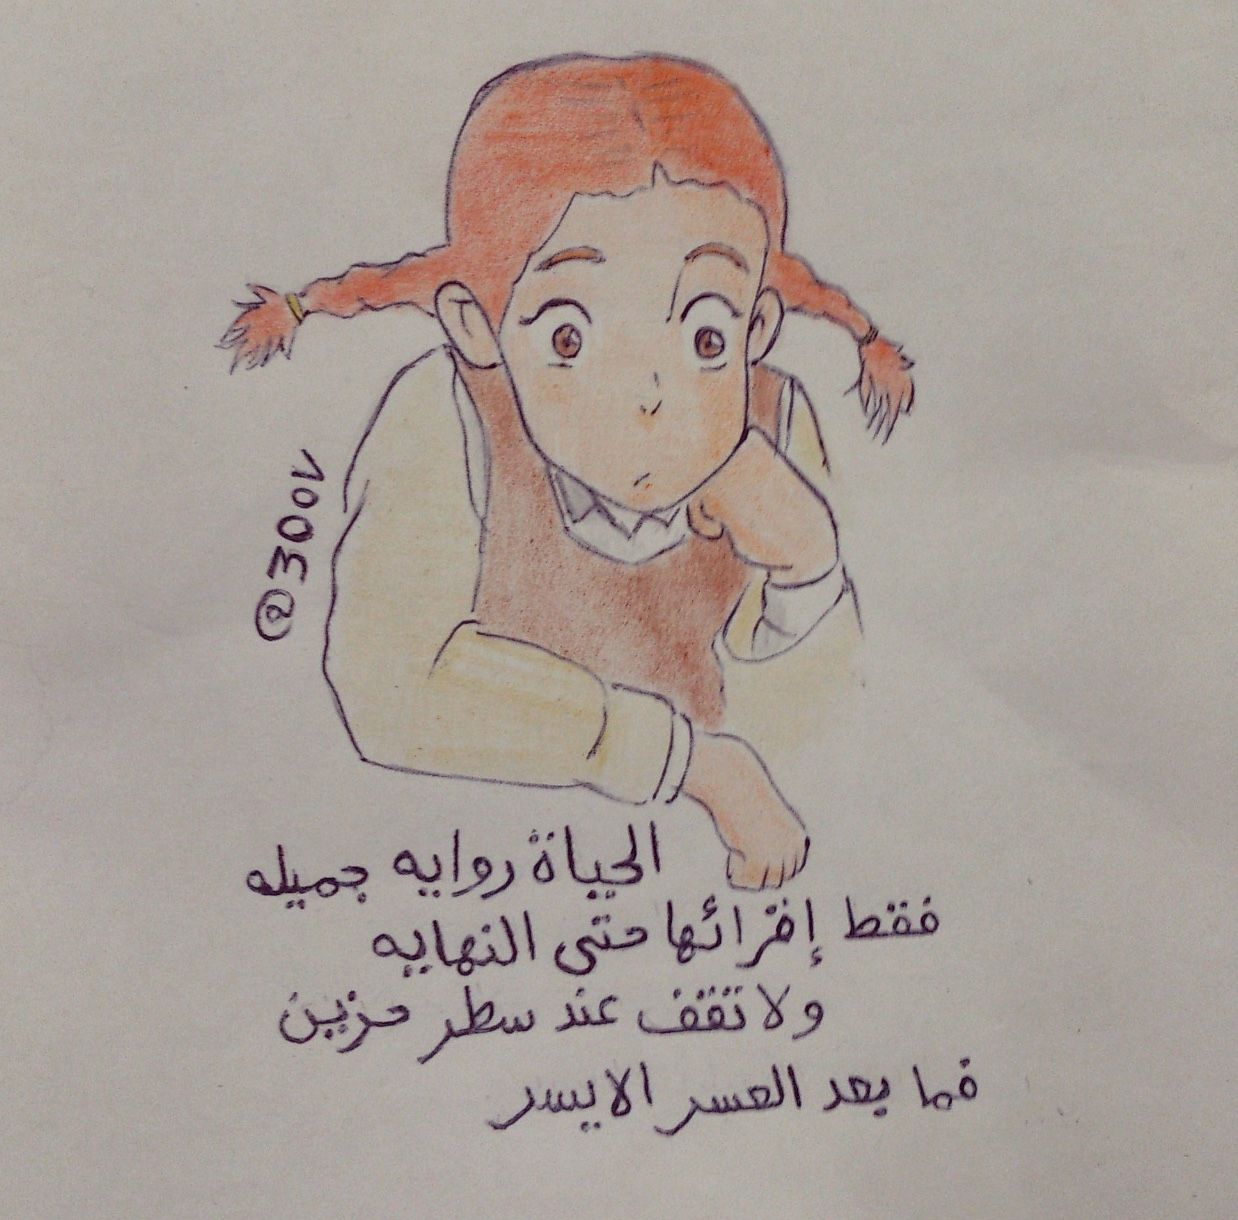 @300v
الحياة روايه جميله
فقط إقرائها حتى النهايه
ولا تقف عند سطر حزين
فما بعد العسر الا يسر